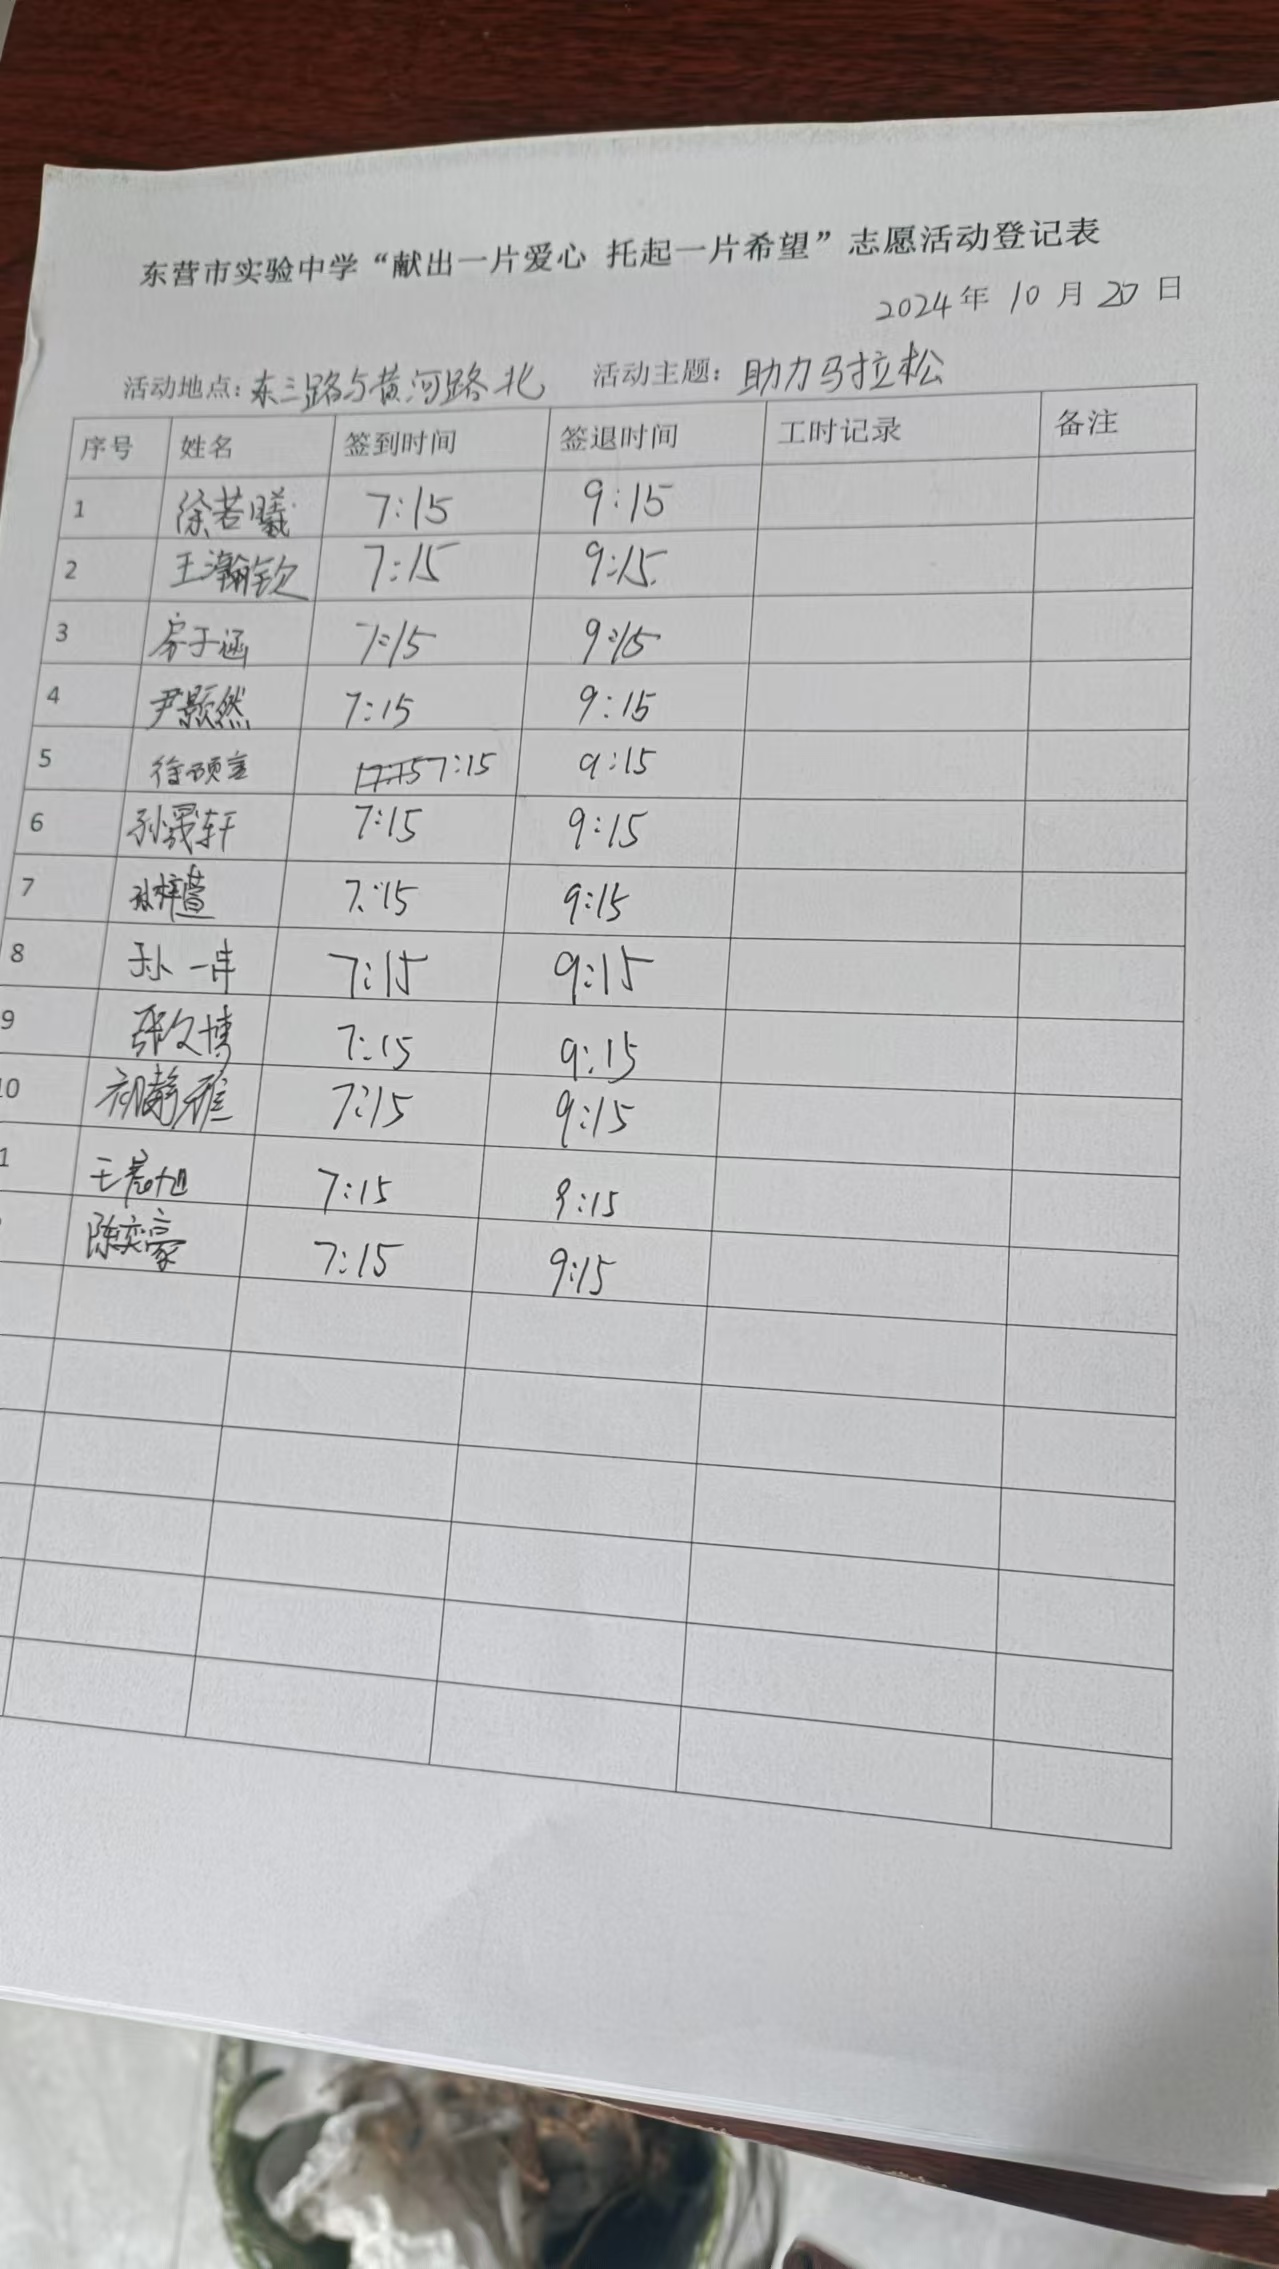 东营市实验中学“献出一片爱心 托起一片希望”志愿活动登记表
2024年 10 月 20 日
活动地点：东三路与黄河路北 活动主题：助力马拉松
序号 姓名 签到时间 签退时间 工时记录 备注
1 徐若曦 7:15 9:15
2 王瀚钦 7:15 9:15
3 房子涵 7:15 9:15
4 尹颢然 7:15 9:15
5 徐硕言 7:15 9:15
6 孙晟轩 7:15 9:15
7 孙梓萱 7:15 9:15
8 孙一冉 7:15 9:15
9 张文博 7:15 9:15
10 祁静雅 7:15 9:15
1 王君旭 7:15 9:15
陈奕豪 7:15 9:15